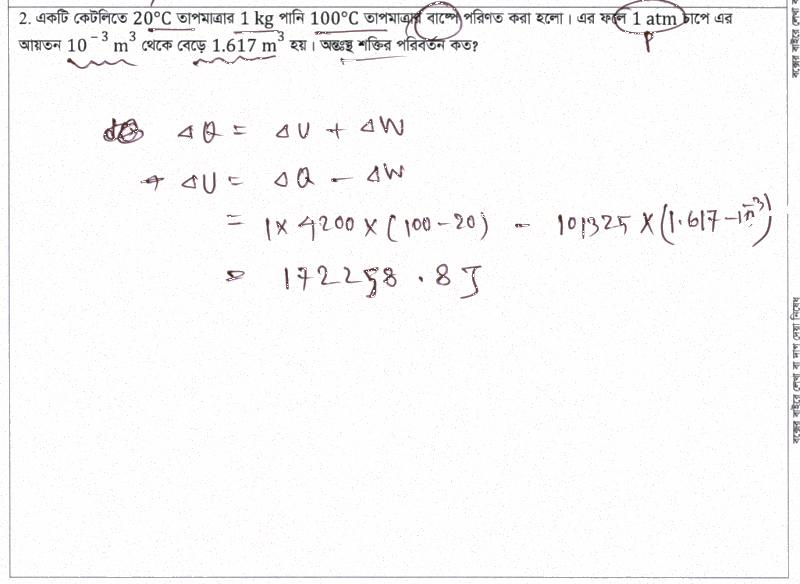 2. একটি কেটলিতে 20°C তাপমাত্রার 1 kg পানি 100°C তাপমাত্রার বাষ্পে পরিণত করা হলো। এর ফলে 1 atm চাপে এর
আয়তন 10⁻³ m³ থেকে বেড়ে 1.617 m³ হয়। অন্তঃস্থ শক্তির পরিবর্তন কত?
P
ΔQ = ΔU + ΔW
→ ΔU = ΔQ − ΔW
= 1 × 4200 × (100 − 20) − 101325 × (1.617 − 10⁻³)
= 172258.8 J
বক্সের বাইরে লেখা বা দাগ দেয়া নিষেধ